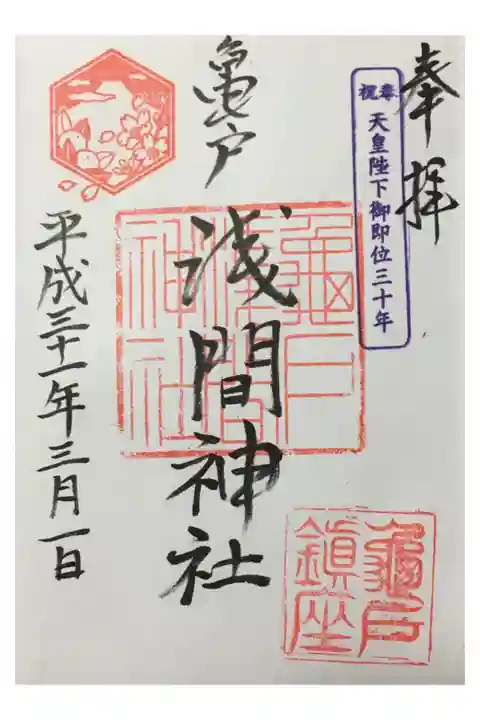 奉拝
奉祝 天皇陛下御即位三十年
亀戸
浅間神社
龜戸浅間神社
龜戸鎮座
平成三十一年三月一日